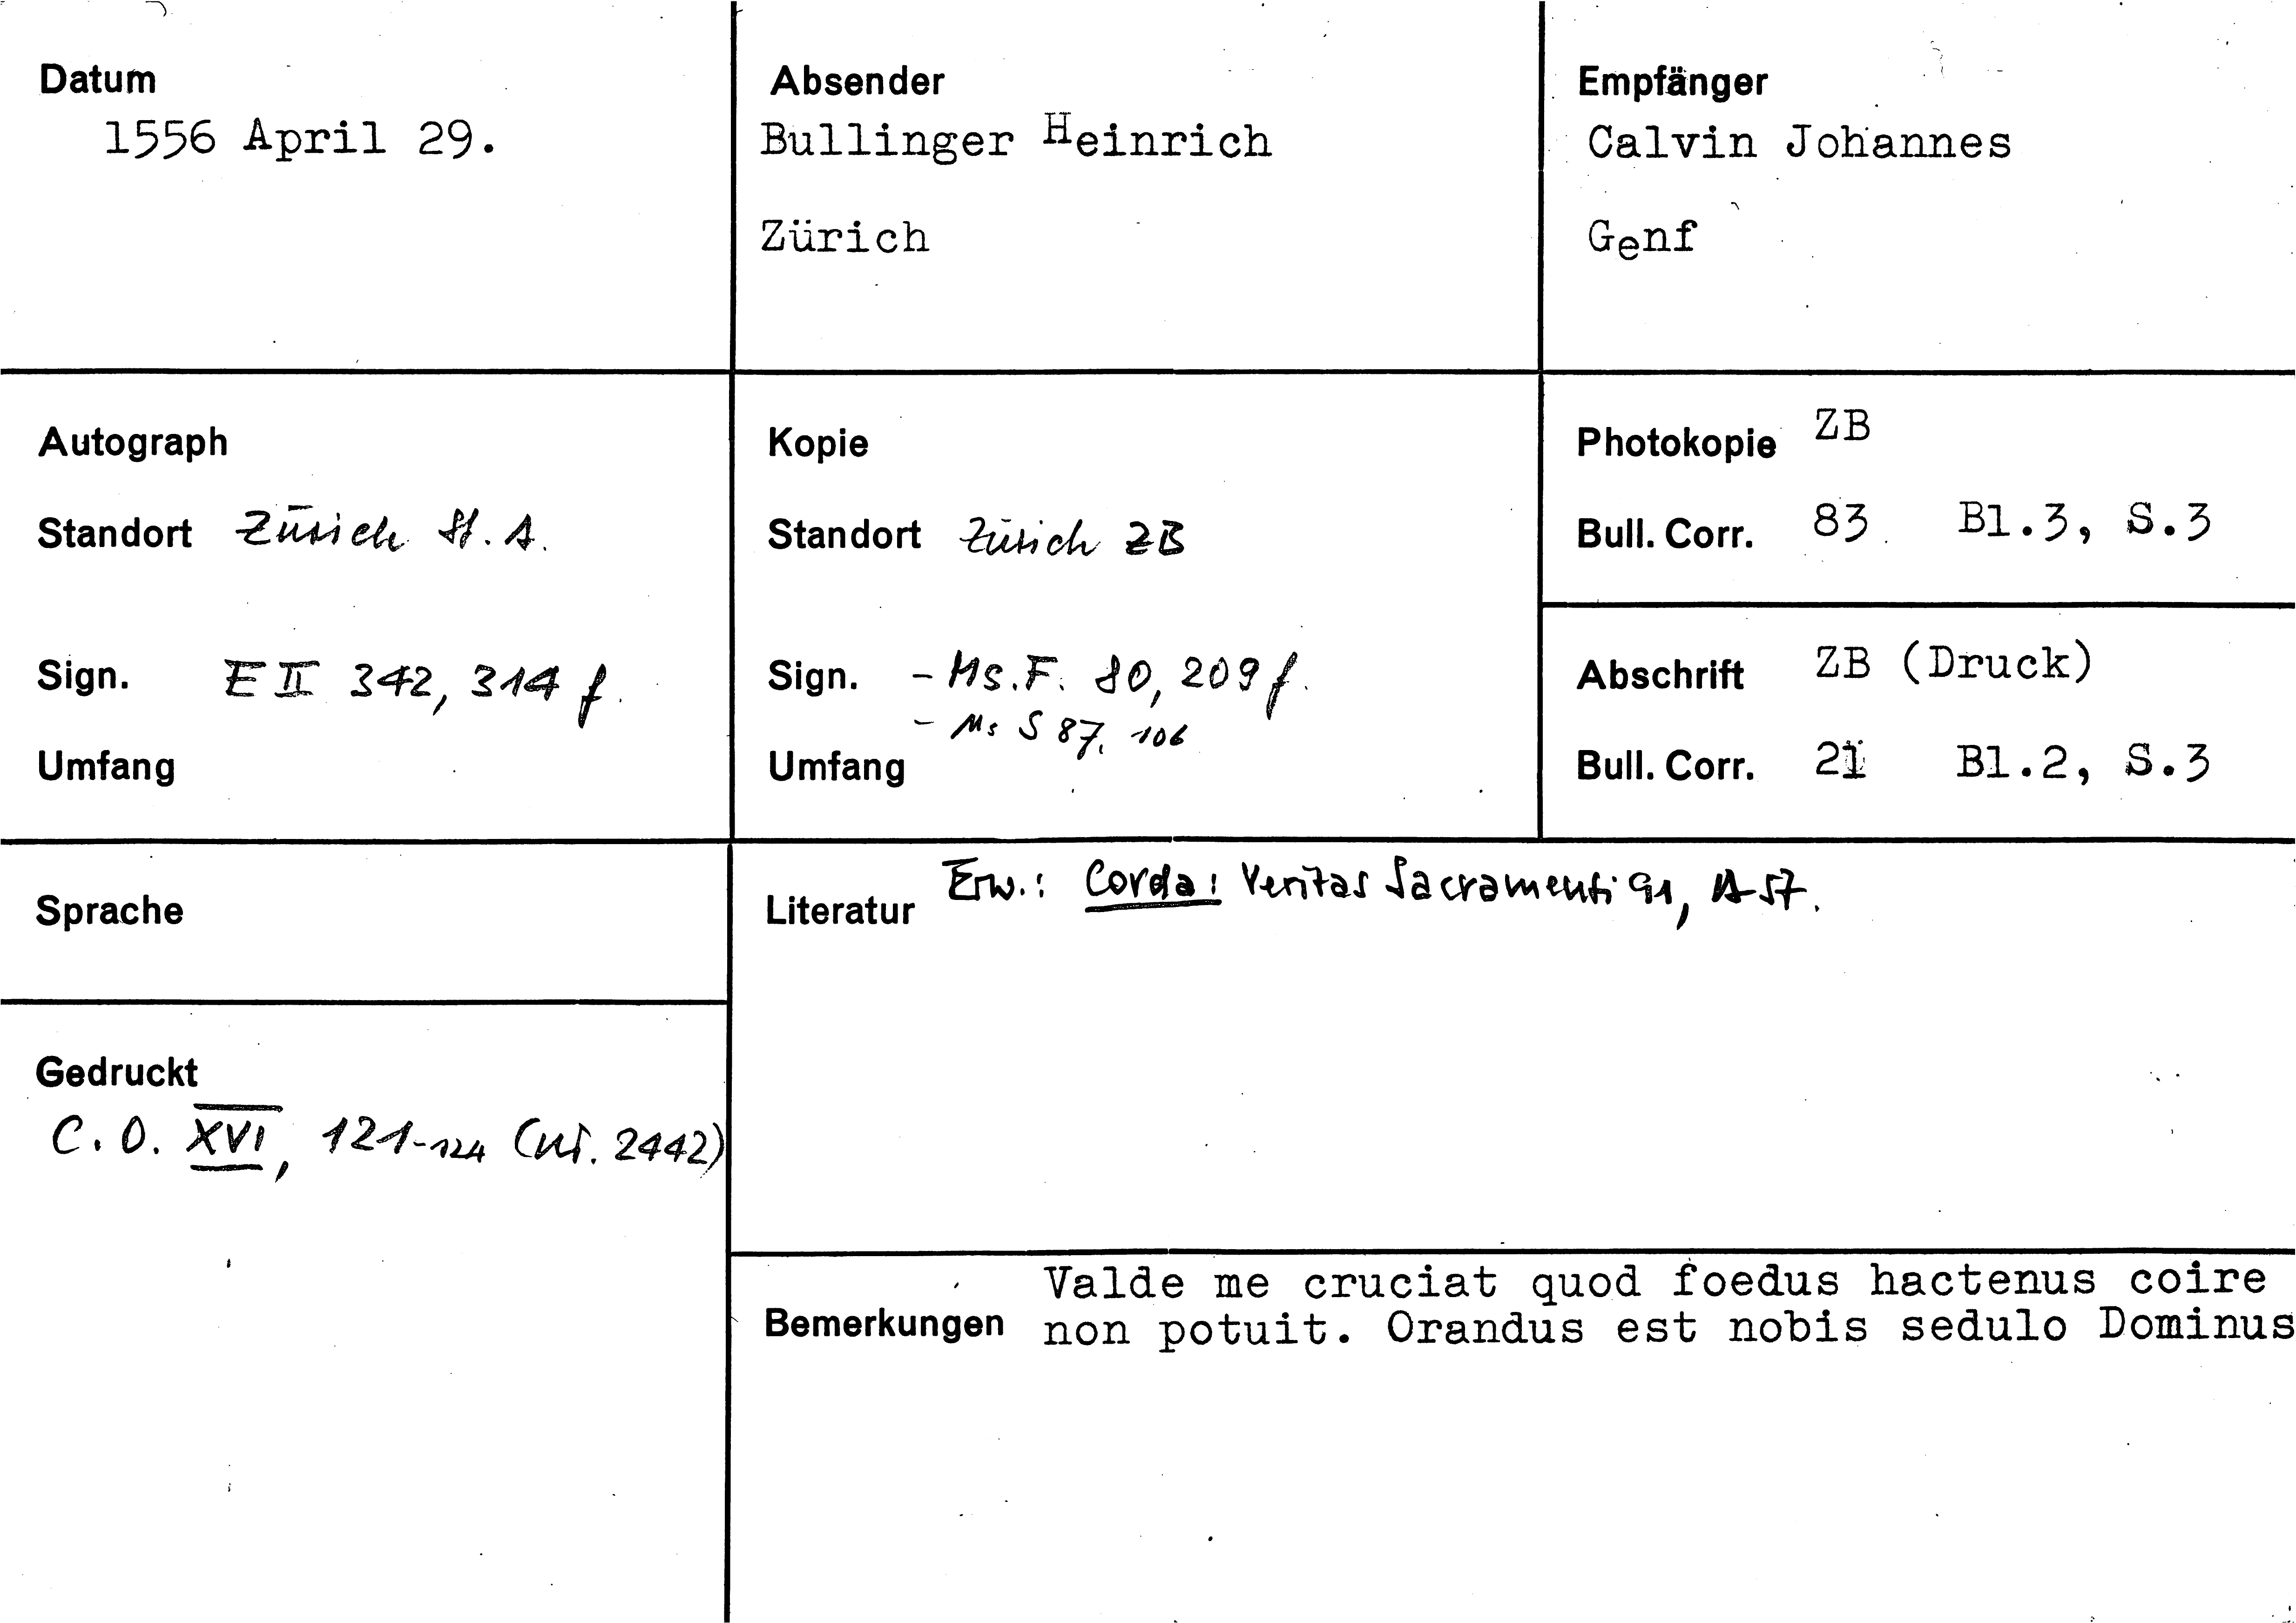 Datum
1556 April 29.
Absender
Bullinger Heinrich
Zürich
Empfänger
Calvin Johannes
Genf
Autograph
Standort Zürich St. A.
Sign. E II 342, 314 f.
Umfang
Kopie
Standort Zürich ZB
Sign. - Ms. F. 80, 209 f.
- Ms S 87, 106
Umfang
Photokopie ZB
Bull. Corr. 83 Bl.3, S.3
Abschrift ZB (Druck)
Bull. Corr. 21 Bl.2, S.3
Sprache
Gedruckt
C. O. XVI, 121-124 (Nr. 2442)
Literatur Erw.: Corda: Veritas Sacramenti 91, A 57.
Bemerkungen
Valde me cruciat quod foedus hactenus coire
non potuit. Orandus est nobis sedulo Dominus